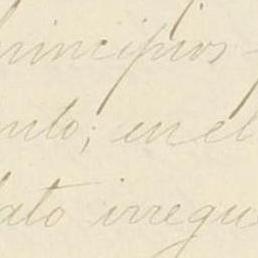 principios
ndo; en el
ato irregu